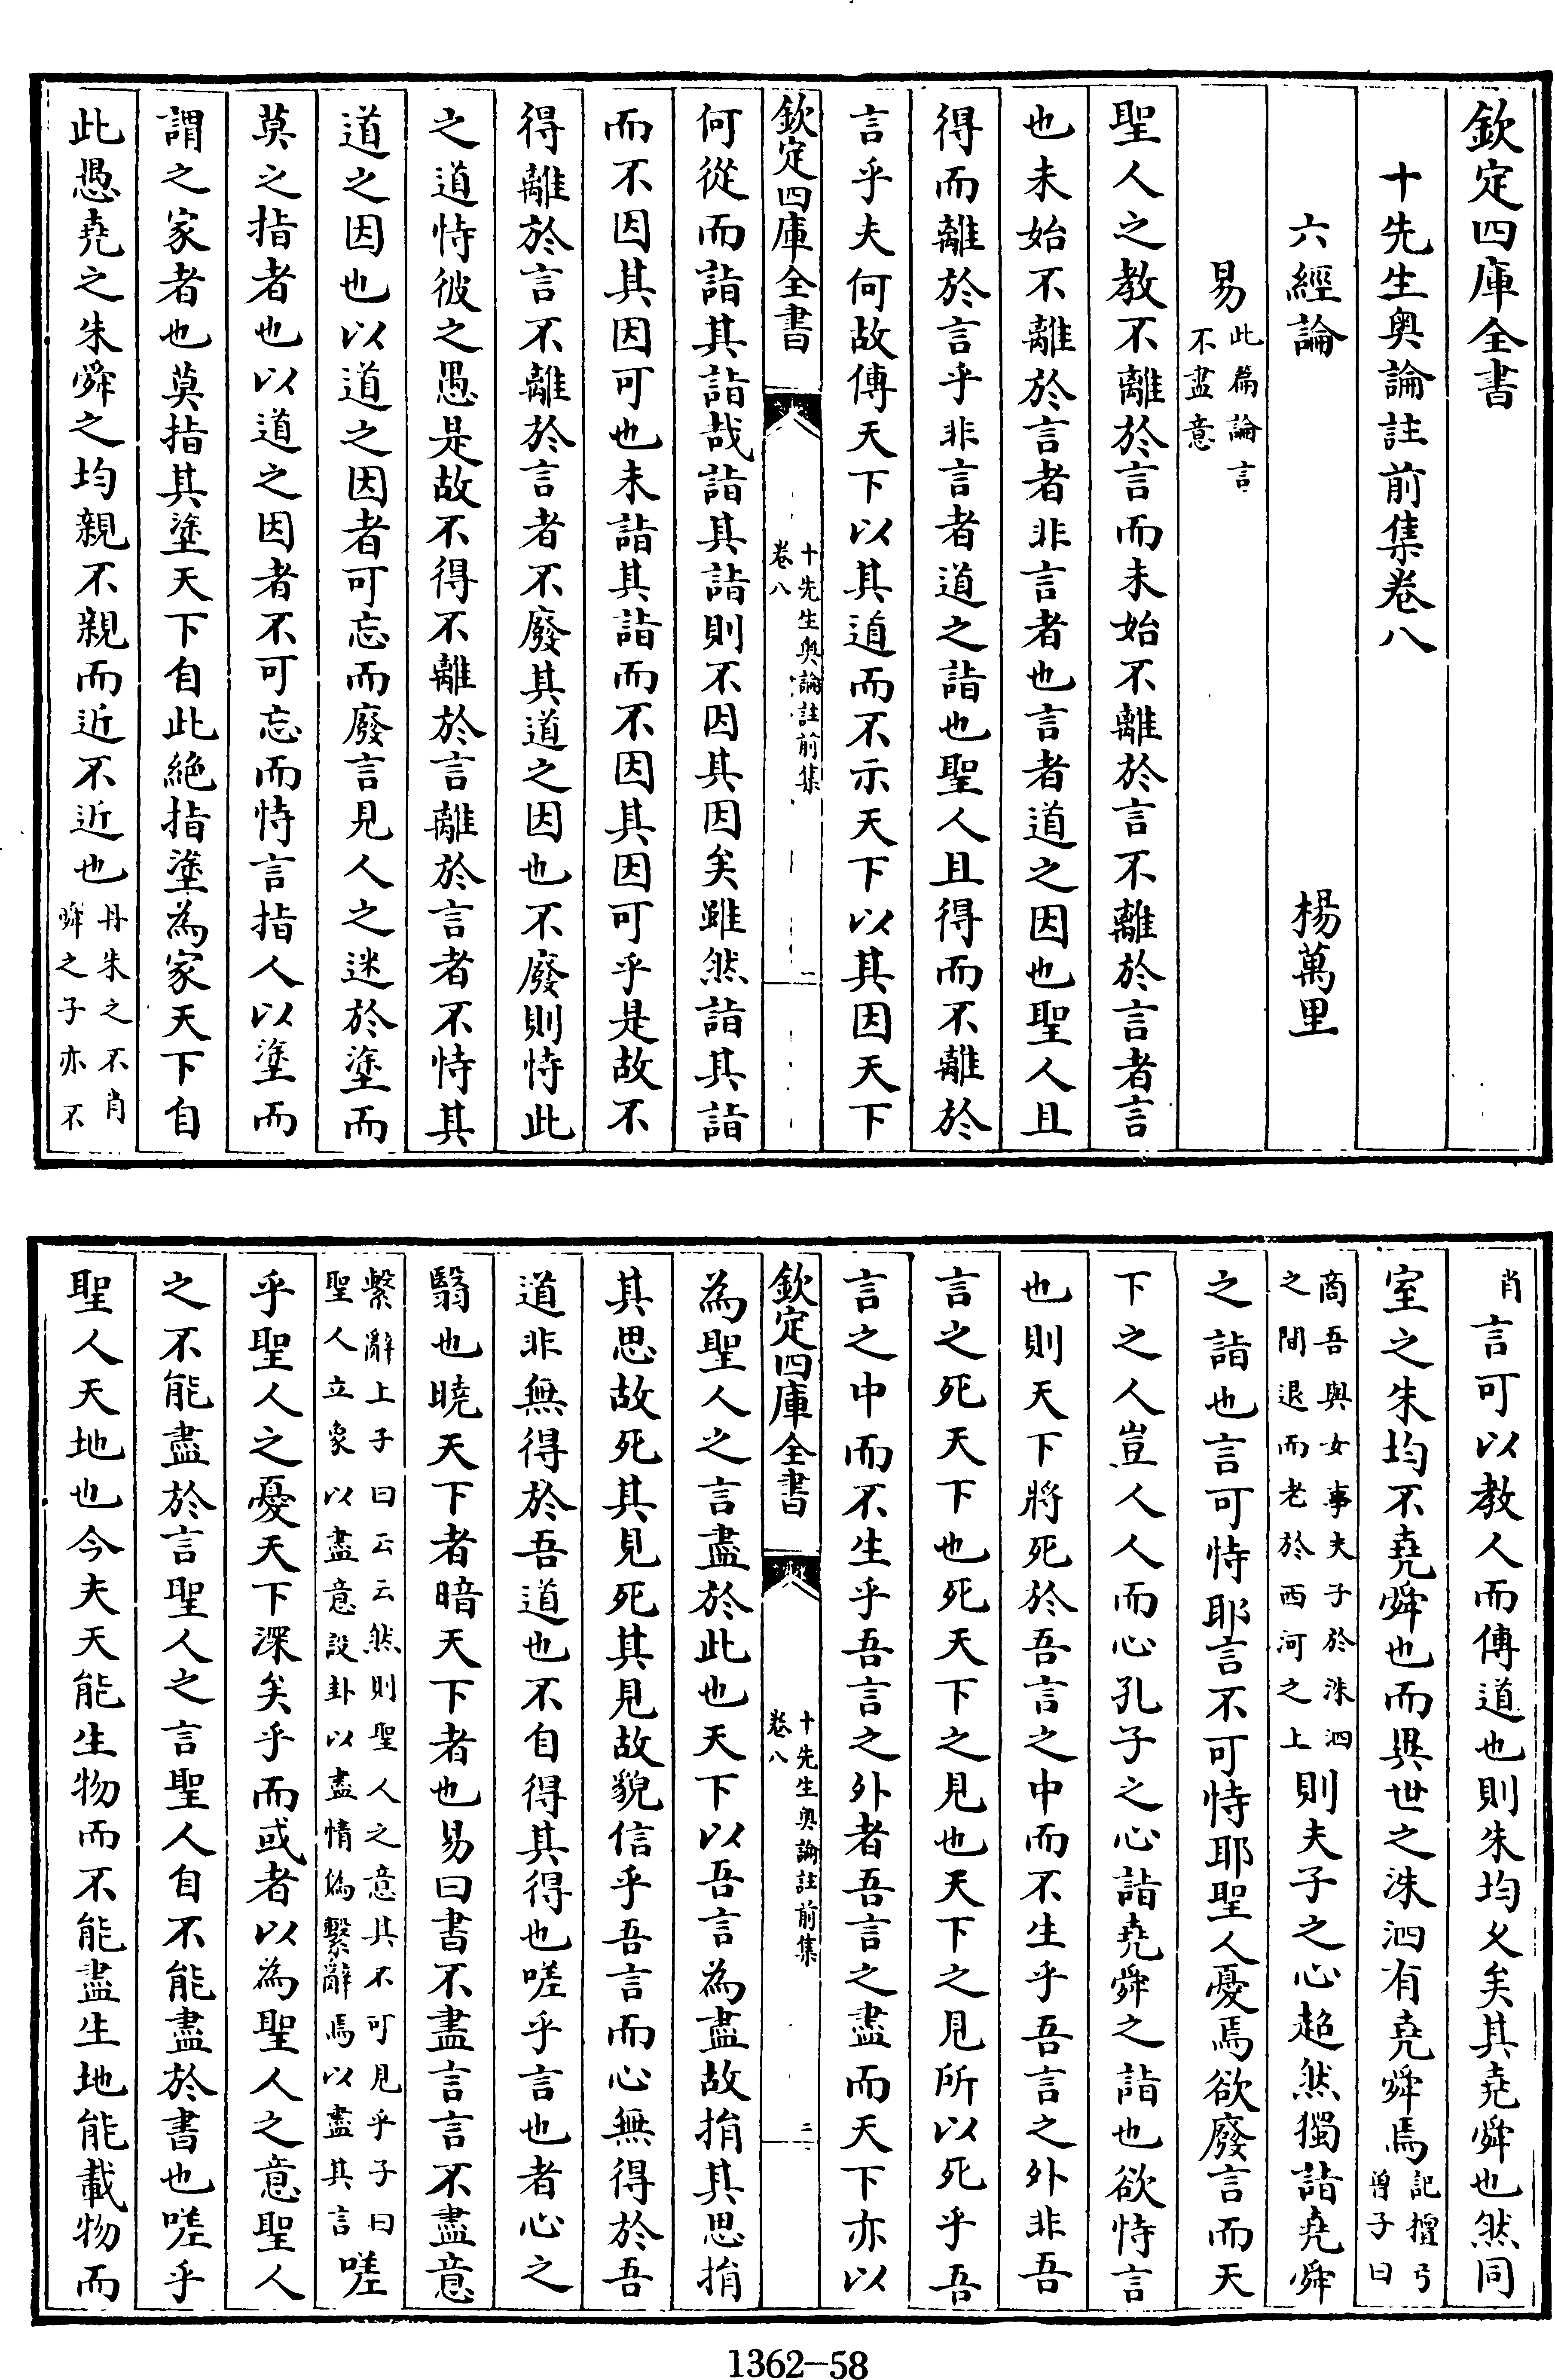 欽定四庫全書
十先生奥論註前集卷八
六經論　楊萬里
易此篇論言不盡意
聖人之教不離於言而未始不離於言不離於言者言
也未始不離於言者非言者也言者道之因也聖人且
得而離於言乎非言者道之詣也聖人且得而不離於
言乎夫何故傳天下以其道而不示天下以其因天下
欽定四庫全書　十先生奥論註前集卷八　二
何從而詣其詣哉詣其詣則不因其因矣雖然詣其詣
而不因其因可也未詣其詣而不因其因可乎是故不
得離於言不離於言者不廢其道之因也不廢則恃此
之道恃彼之愚是故不得不離於言離於言者不恃其
道之因也以道之因者可忘而廢言見人之迷於塗而
莫之指者也以道之因者不可忘而恃言指人以塗而
謂之家者也莫指其塗天下自此絶指塗為家天下自
此愚堯之朱舜之均親不親而近不近也丹朱之不肖舜之子亦不
肖言可以教人而傳道也則朱均乂矣其堯舜也然同
室之朱均不堯舜也而異世之洙泗有堯舜焉記檀弓曽子曰
商吾與女事夫子於洙泗之間退而老於西河之上則夫子之心超然獨詣堯舜
之詣也言可恃耶言不可恃耶聖人憂焉欲廢言而天
下之人豈人人而心孔子之心詣堯舜之詣也欲恃言
也則天下將死於吾言之中而不生乎吾言之外非吾
言之死天下也死天下之見也天下之見所以死乎吾
言之中而不生乎吾言之外者吾言之盡而天下亦以
欽定四庫全書　十先生奥論註前集卷八　三
為聖人之言盡於此也天下以吾言為盡故捐其思捐
其思故死其見死其見故貌信乎吾言而心無得於吾
道非無得於吾道也不自得其得也嗟乎言也者心之
翳也曉天下者暗天下者也易曰書不盡言言不盡意
繫辭上子曰云云然則聖人之意其不可見乎子曰聖人立象以盡意設卦以盡情偽繫辭焉以盡其言嗟
乎聖人之憂天下深矣乎而或者以為聖人之意聖人
之不能盡於言聖人之言聖人自不能盡於書也嗟乎
聖人天地也今夫天能生物而不能盡生地能載物而
1362-58